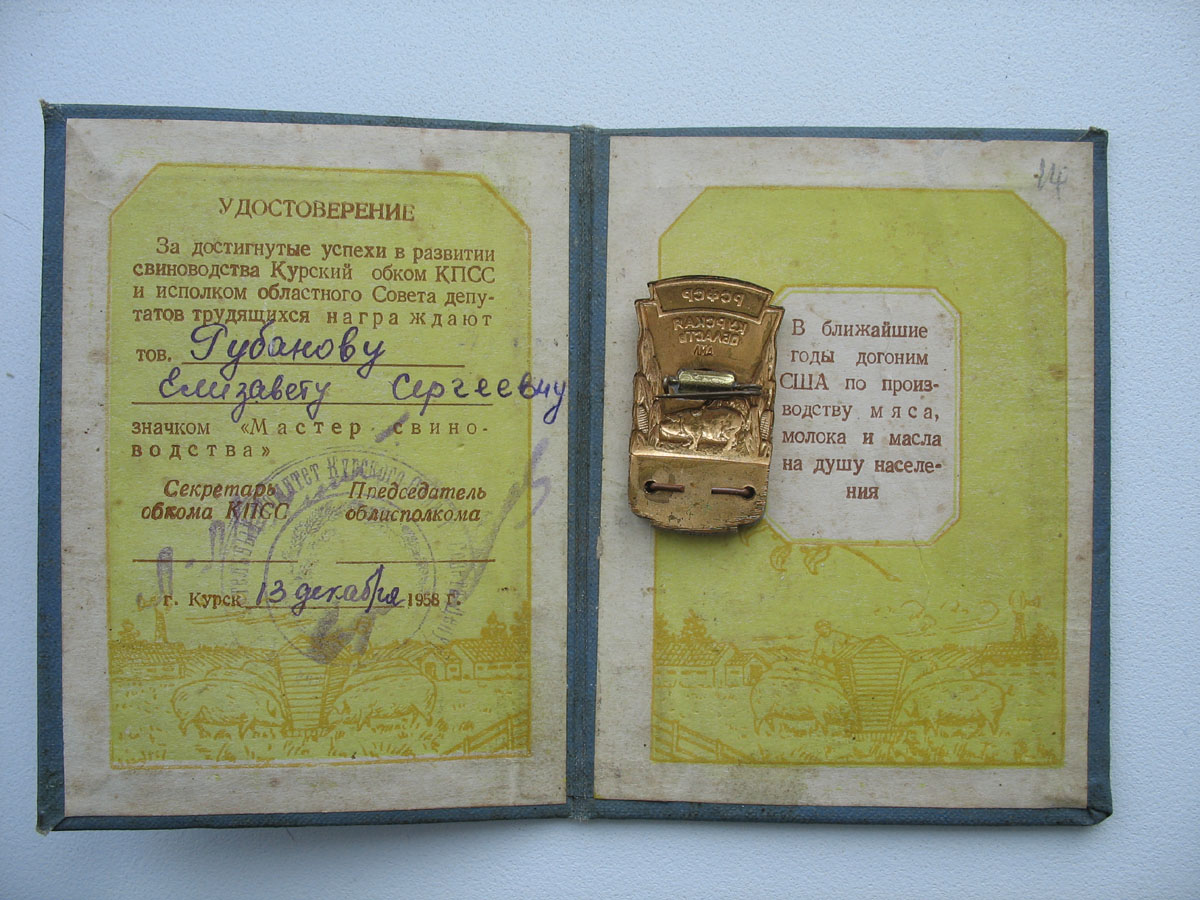 УДОСТОВЕРЕНИЕ
За достигнутые успехи в развитии
свиноводства Курский обком КПСС
и исполком областного Совета депу-
татов трудящихся награждают
тов. Губанову
Елизавету Сергеевну
значком «Мастер свино-
водства»
Секретарь обкома КПСС
Председатель облисполкома
г. Курск 13 декабря 1958 г.
14
РСФСР
КУРСКАЯ
ОБЛАСТЬ
В ближайшие
годы догоним
США по произ-
водству мяса,
молока и масла
на душу населе-
ния